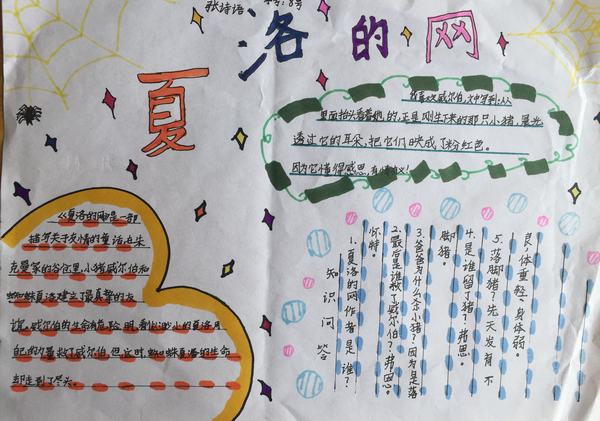 张诗语 学号:8号
夏洛的网
我喜欢威尔伯,
里面抬头看着她的,正是刚生下来的那只小猪。晨光
透过它的耳朵,把它们映成了粉红色。
因为它懂得感恩,有情有义!
《夏洛的网》是一部
描写关于友情的童话,在朱
克曼家的谷仓里,小猪威尔伯和
蜘蛛夏洛建立了最真挚的友
谊。威尔伯的生命有危险时,看似渺小的夏洛用
自己的力量救了威尔伯,但,这时,蜘蛛夏洛的生命
却走到了尽头。
知识问答
1.夏洛的网作者是谁?
怀特。
2.最后是谁救了威尔伯?弗恩。
3.爸爸为什么杀小猪?因为是落
脚猪。
4.是谁留了猪?弗恩。
5.落脚猪?先天发育不
良,体重轻,身体弱。